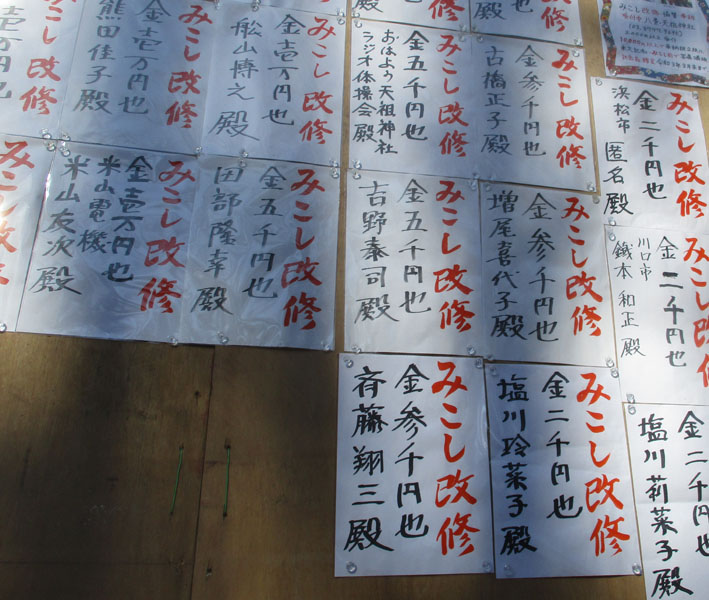 みこし改修
金壱万円也
熊田佳子殿
みこし改修
金壱万円也
舩山博之殿
みこし改修
金五千円也
おはよう天祖神社
ラジオ体操会殿
みこし改修
金参千円也
古橋正子殿
みこし改修
金二千円也
浜松市
匿名殿
みこし改修
金壱万円也
米山電機
米山友次殿
みこし改修
金五千円也
田部隆幸殿
みこし改修
金五千円也
吉野泰司殿
みこし改修
金参千円也
増尾喜代子殿
みこし改修
金二千円也
川口市
鐵本和正殿
みこし改修
金参千円也
斉藤翔三殿
みこし改修
金二千円也
塩川玲菜子殿
金二千円也
塩川莉菜子殿